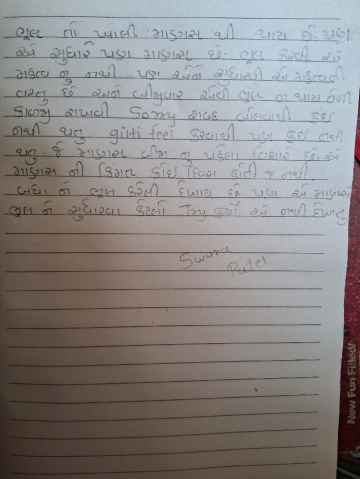 ભૂલ તો ખાલી માણસ થી થાય છે. પણ
એને સુધારે પણ માણસ છે. ભૂલ કરવી એ
મહત્વ નુ નથી. પણ એને સુધારવી એ મહત્વની
વસ્તુ છે અને બીજીવાર એવી ભૂલ ન થાય તેની
કાળજી રાખવી Sorry શબ્દ બોલવાથી કંઈ
નથી થતુ gilti feel કરવાથી પણ કંઇ નથી
થતુ. જે માણસ બીજા નુ પહેલા વિચારે છે. એ
માણસ ની કિંમત કોઈ દિવસ હોતી જ નથી.
બધા ને ભૂલ કરેલી દેખાય છે પણ એ માણસ
ભૂલ ને સુધારવા કેટલો Try કર્યો એ નથી દેખાતુ
Swara
Patel
New Fun Filled!